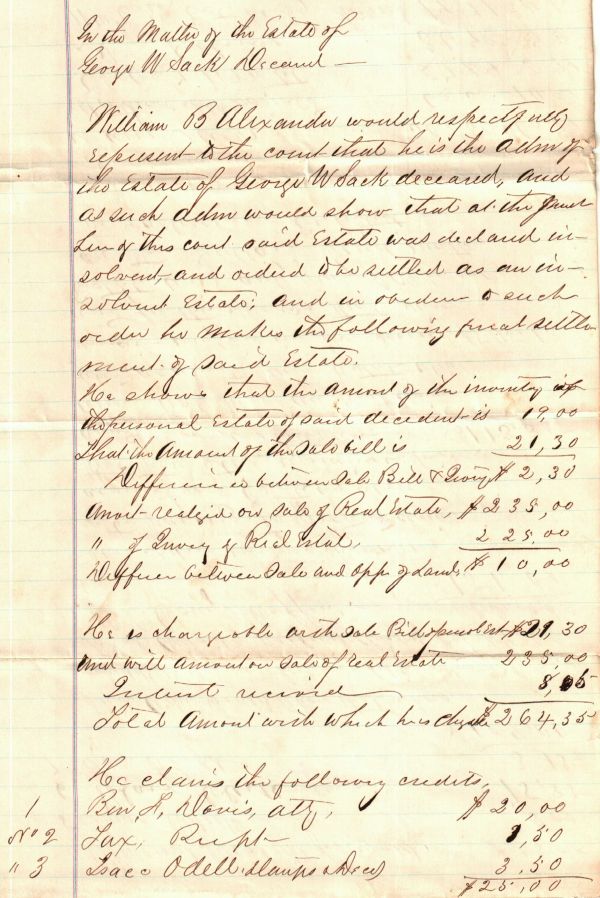 In the Matter of the Estate of
George W Sack Deceasd —
William B Alexander would respectfully
represent to the court that he is the adm of
the Estate of George W Sack deceased, and
as such adm would show that at the
Term of this court said Estate was declared in-
solvent, and ordered to be settled as an in-
solvent Estate; and in obedience to such
order he makes the following final settle
ment of said Estate.
He shows that the amount of the inventory of
the personal Estate of said decedent is 19,00
That the amount of the sale bill is 21,30
Difference between Sale Bill & Invoy $ 2,30
Amout realized on sale of Real Estate, $ 235,00
" of Invoy of Real Estate, 225,00
Differnce between Sale and app of Lands $ 10,00
He is chargeable with sale Bill personl Est $ 21,30
and with amount on sale of real Estate 235,00
Interest received 8,05
Total Amount with which he is chgable $ 264,35
He claims the following credits,
1 Ben H, Davis, atty, $ 20,00
No 2 Tax, Recept 1,50
" 3 Isacc Odell Stamps & Deed 3,50
$25,00